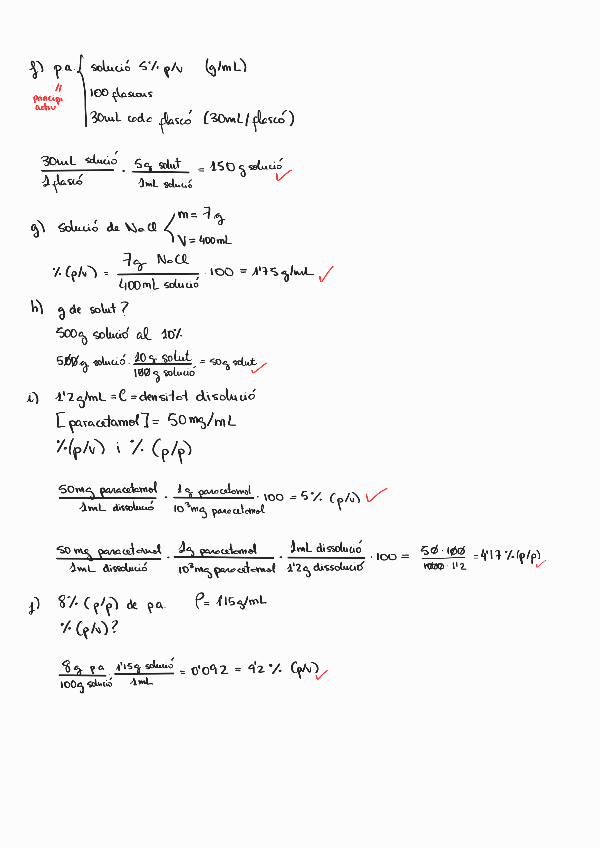 f) p.a. solució 5% p/v (g/mL)
principi
actiu
100 flascons
30mL cada flascó (30mL/flascó)
30mL solució / 1 flascó · 5g solut / 1mL solució = 150 g solució
g) solució de NaCl m = 7g
V = 400mL
% (p/v) = 7g NaCl / 400mL solució · 100 = 1'75 g/mL
h) g de solut?
500g solució al 10%
500g solució · 10g solut / 100g solució = 50g solut
i) 1'2g/mL = ρ = densitat disolució
[paracetamol] = 50mg/mL
%(p/v) i % (p/p)
50mg paracetamol / 1mL dissolució · 1g paracetamol / 10³mg paracetamol · 100 = 5% (p/v)
50mg paracetamol / 1mL dissolució · 1g paracetamol / 10³mg paracetamol · 1mL dissolució / 1'2g dissolució · 100 = 50·100 / 1000·1'2 = 4'17 % (p/p)
j) 8% (p/p) de pa. ρ = 1'15g/mL
% (p/v)?
8g pa / 100g solució · 1'15g solució / 1mL = 0'092 = 9'2 % (p/v)